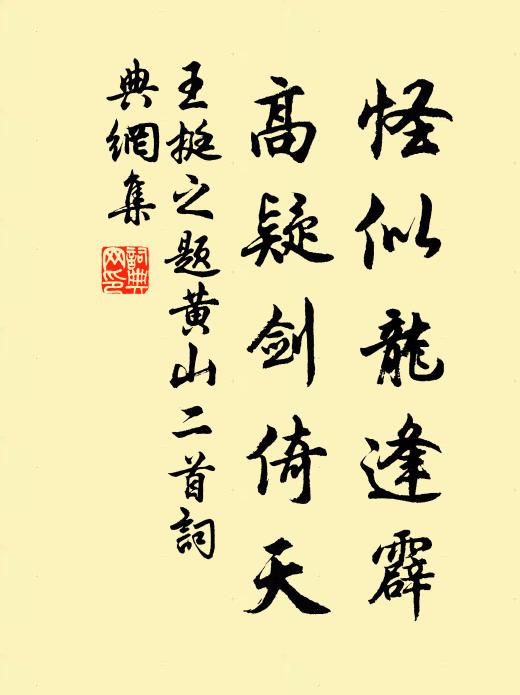 怪似龍逢霹
高疑劍倚天
王挺之題黄山二首詞
典網集
詞典网印